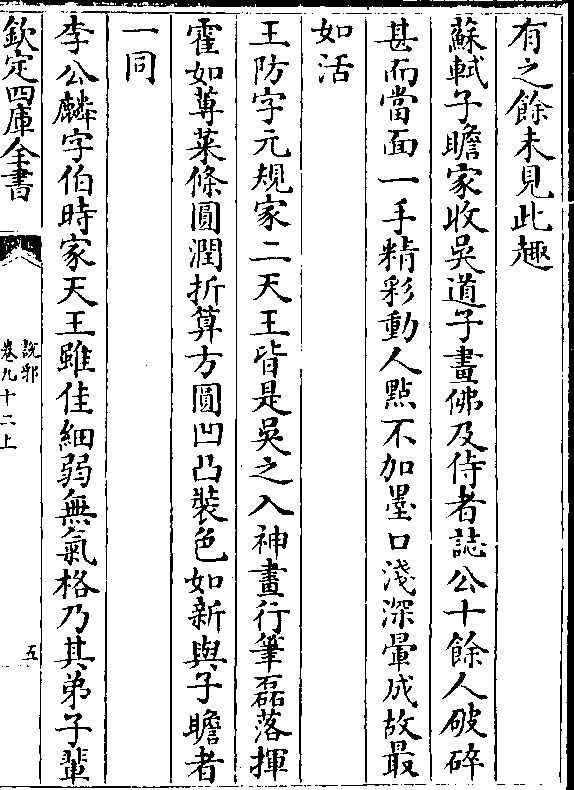 有之餘未見此趣
蘇軾子瞻家收吳道子畫佛及侍者誌公十餘人破碎
甚而當面一手精彩動人點不加墨口淺深暈成故最
如活
王防字元規家二天王皆是吳之入神畫行筆磊落揮
霍如蓴菜條圓潤折算方圓凹凸裝色如新與子瞻者
一同
李公麟字伯時家天王雖佳細弱無氣格乃其弟子輩
欽定四庫全書
說郛
卷九十二上
五